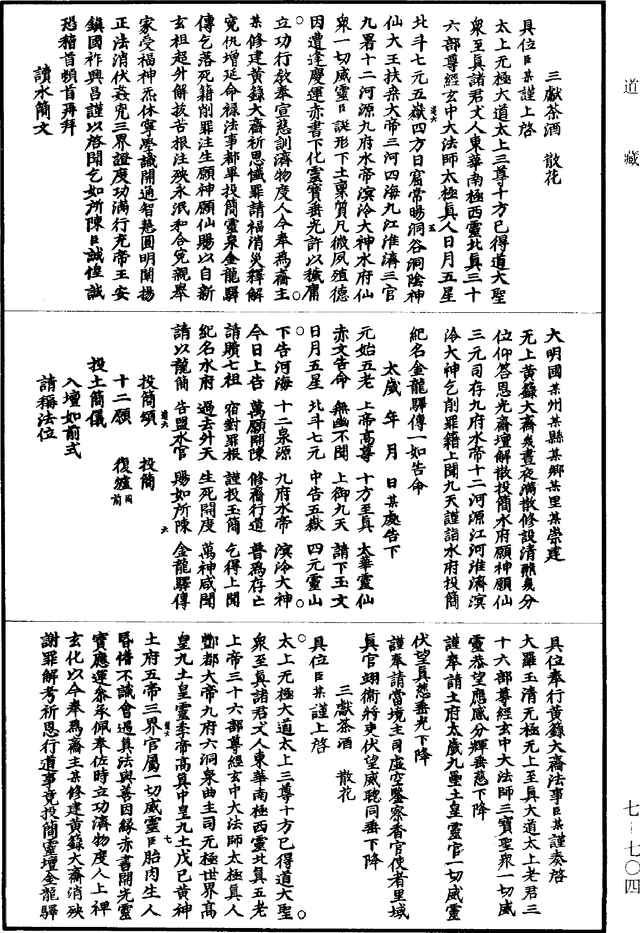 道藏
七-七〇四
三獻茶酒　散花
具位臣某謹上啓
太上无極大道太上三尊十方已得道大聖
衆至真諸君丈人東華南極西靈北真三十
六部尊經玄中大法師太極真人日月五星
北斗七元五嶽四方日窟常暘洞谷洞陰神
仙大王扶桑大帝三河四海九江淮濟三官
九署十二河源九府水帝溟泠大神水府仙
衆一切威靈臣誕形下土稟質凡微夙殖德
因遭逢慶運赤書下化靈寶垂光許以猥庸
立功行啟奉宣慈訓濟物度人今奉為齋主
某修建黃籙大齋祈恩懺罪請福消災釋解
冤仇增延命祿法事都畢投簡靈泉金龍驛
傳乞落死籍削罪注生願神願仙賜以自新
玄祖超升解拔苦根注殃永泯和合冤親舉
家受福神炁休寧學識開通智慧圓明闡揚
正法消伏姦宄三界證度功滿行充帝王安
鎮國祚興昌謹以啓聞乞如所陳臣誠惶誠
恐稽首頓首再拜
讀水簡文
大明國某州某縣某鄉某里某崇建
无上黃籙大齋幾晝夜滿散修設清醮幾分
位仰答恩光齋壇解散投簡水府願神願仙
三元司存九府水帝十二河源江河淮濟溟
泠大神乞削罪籍上聞九天謹詣水府投簡
紀名金龍驛傳一如告命
太歲　年　月　日某處告下
元始五老　上帝高尊　十方至真　太華靈仙
赤文告命　無幽不聞　上御九天　請下玉文
日月五星　北斗七元　中告五嶽　四元靈山
下告河海　十二泉源　九府水帝　溟泠大神
今日上告　萬願開陳　修齋行道　普為存亡
請贖七祖　宿對罪根　謹投玉簡　乞得上聞
紀名水府　過去升天　生死開度　萬神咸聞
請以龍簡　告盟水官　賜如所陳　金龍驛傳
投簡頌　投簡
十二願　復爐同前
投土簡儀
入壇如前式
請稱法位
具位奉行黃籙大齋法事臣某謹奏啓
大羅玉清无極无上至真大道太上老君三
十六部尊經玄中大法師三寶聖衆一切威
靈恭望應感分輝垂慈下降
謹奉請土府太歲九壘土皇靈官一切威靈
伏望真慈垂光下降
謹奉請當境主司虛空鑒察香官使者里域
真官翊衛將吏伏望威聰同垂下降
三獻茶酒　散花
具位臣某謹上啓
太上无極大道太上三尊十方已得道大聖
衆至真諸君丈人東華南極西靈北真五老
上帝三十六部尊經玄中大法師太極真人
酆都大帝九府六洞衆曲主司无極世界高
皇九土皇靈李帝高真中皇九土戊己黃神
土府五帝三界官屬一切威靈臣胎肉生人
昏憯不識會遇真法與善因緣赤書開光靈
寶應運忝承佩奉佐時立功濟物度人上裨
玄化以今奉為齋主某修建黃籙大齋消殃
謝罪解考祈恩行道事竟投簡靈壇金龍驛